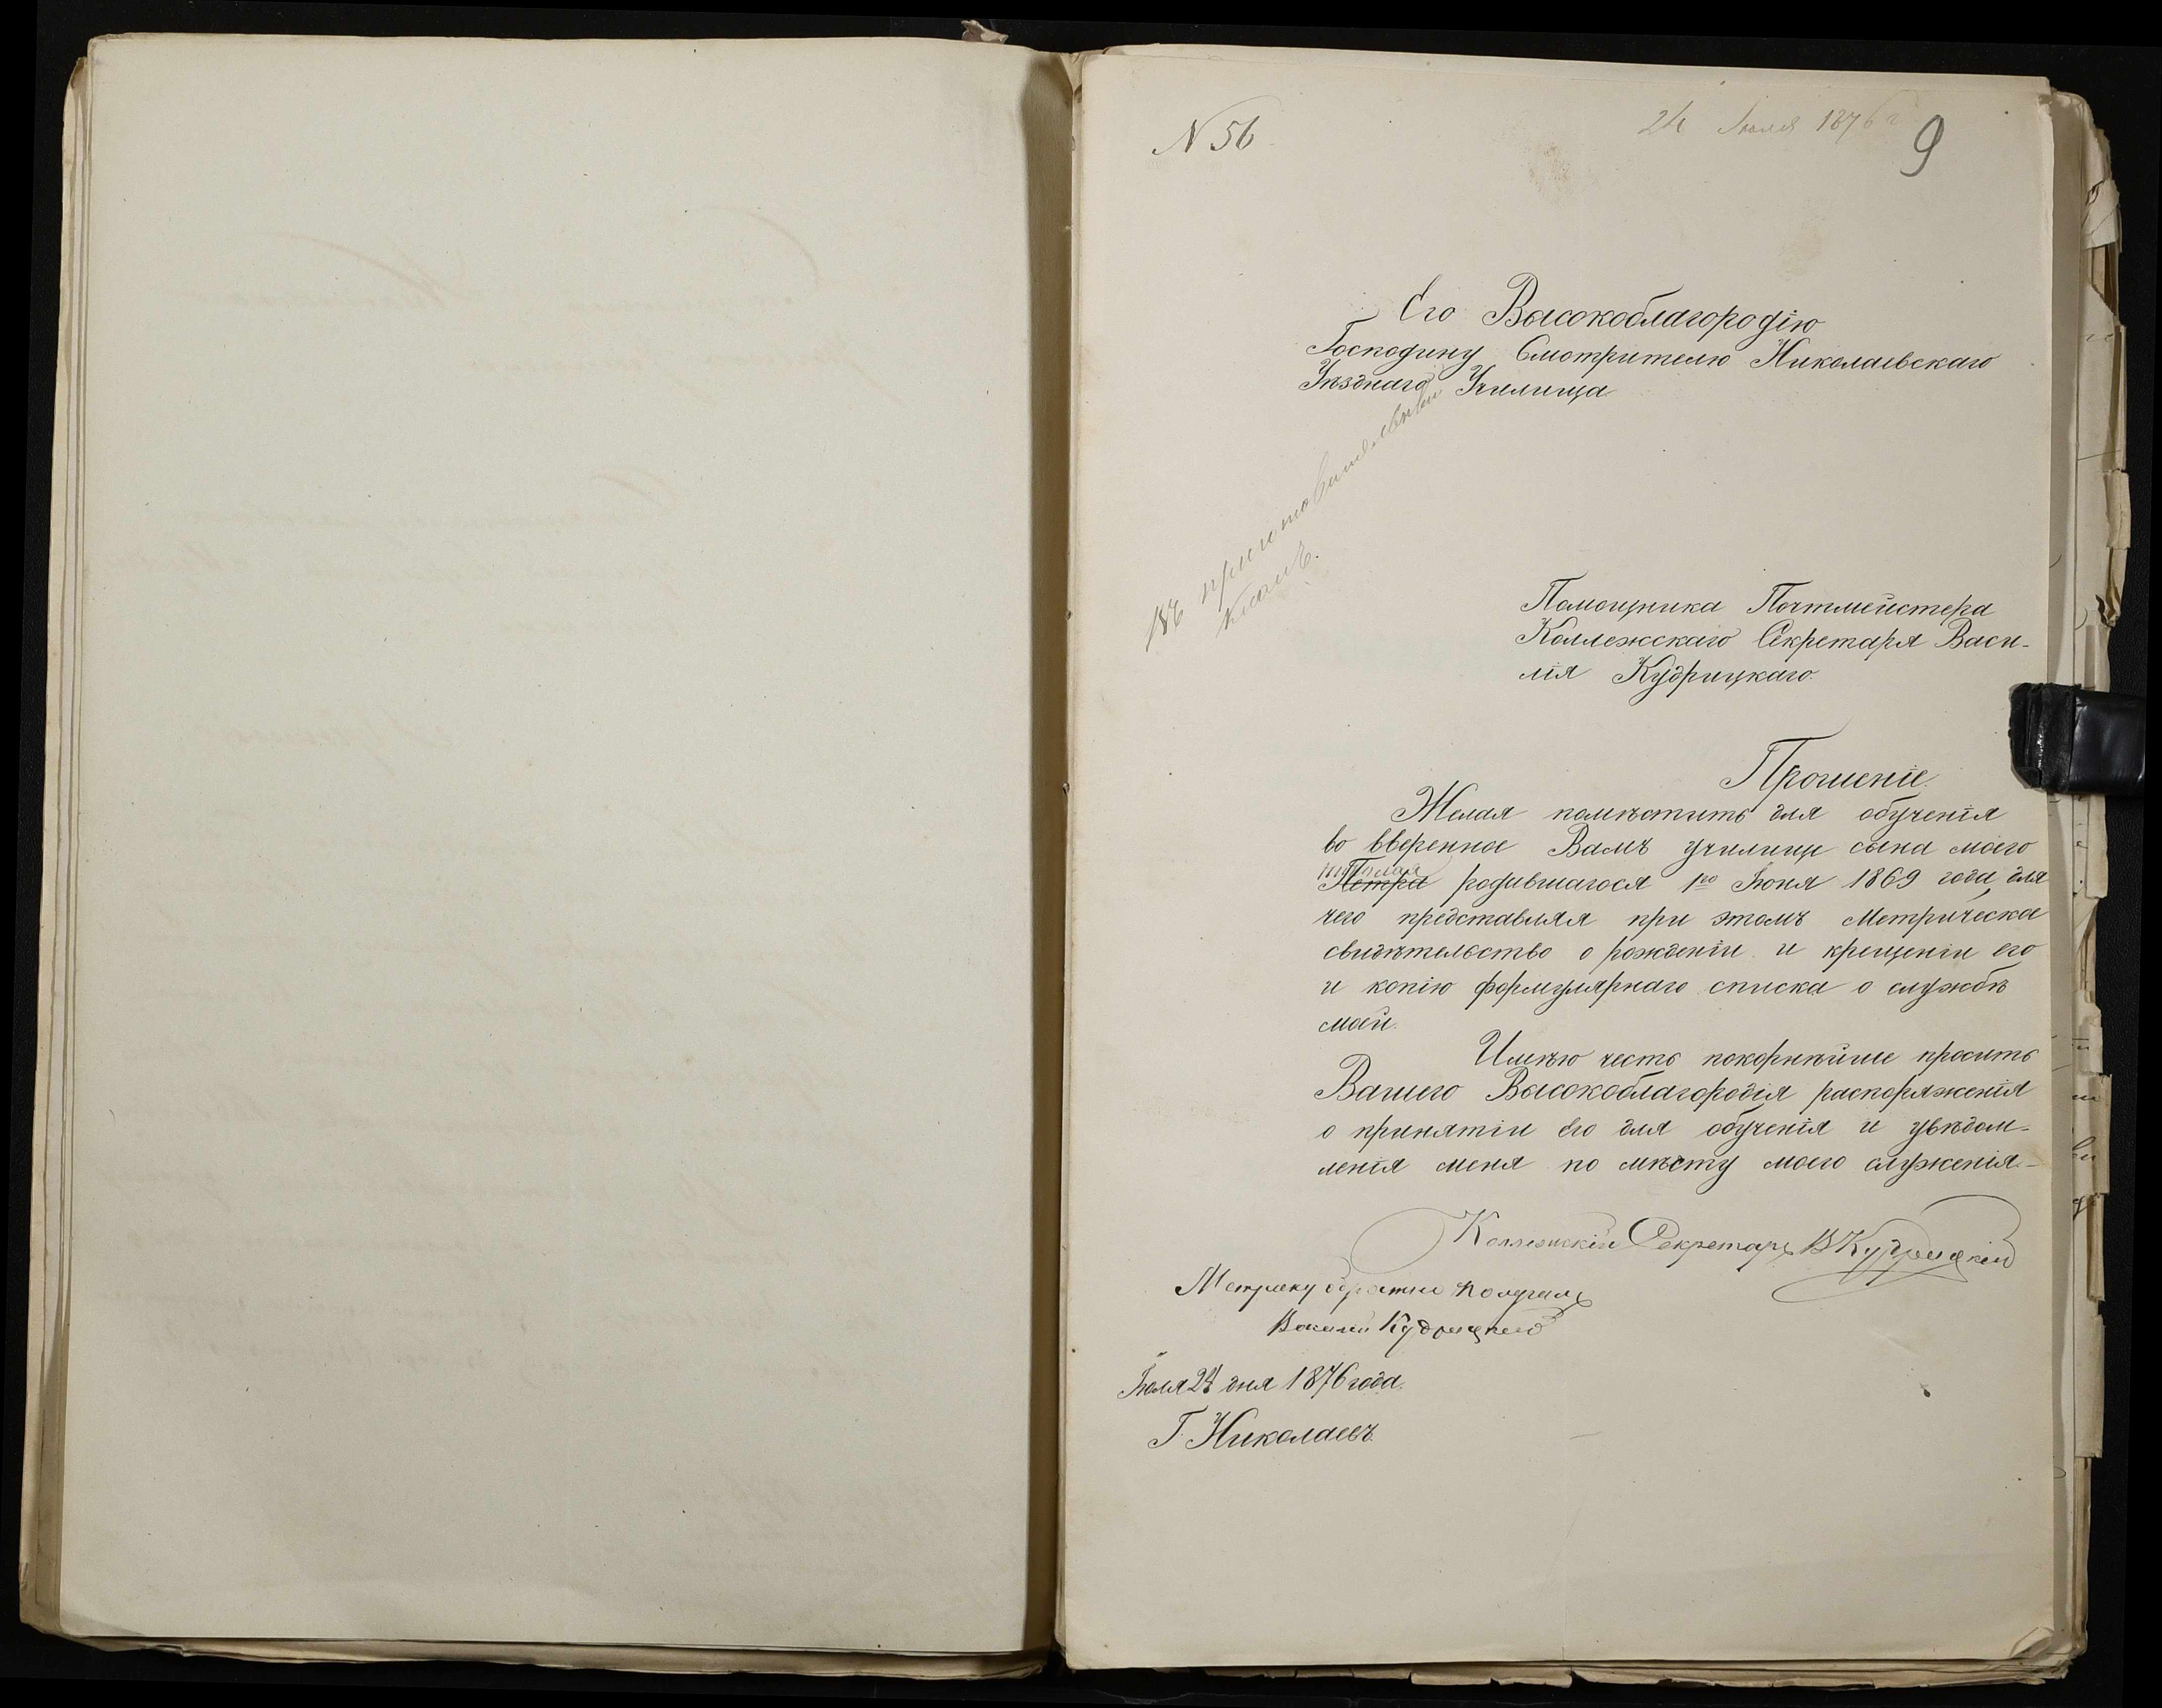 N 56
24 Іюля 1876 г
9
Его Высокоблагородію
Господину Смотрителю Николаевскаго
Уѣзднаго Училища
въ приготовительный
класъ.
Помощника Почтмейстера
Коллежскаго Секретаря Васи-
лія Кудрицкаго.
Прошеніе.
Желая помѣстить для обученія
во вверенное Вамъ училище сына моего
Петра родившагося 1го Іюня 1869 года, для
чего представляя при этомъ Метрическое
свидѣтельство о рожденіи и крещеніи его
и копію формулярнаго списка о службѣ
моей.
Имѣю честь покорнѣйше просить
Вашего Высокоблагородія распоряженія
о принятіи его для обученія и увѣдом-
ленія меня по мѣсту моего служенія.-
Коллежскій Секретарь В Кудрицкій
Метрику обратно получилъ
Василій Кудрицкій
Іюля 24 дня 1876 года.
Г. Николаевъ.